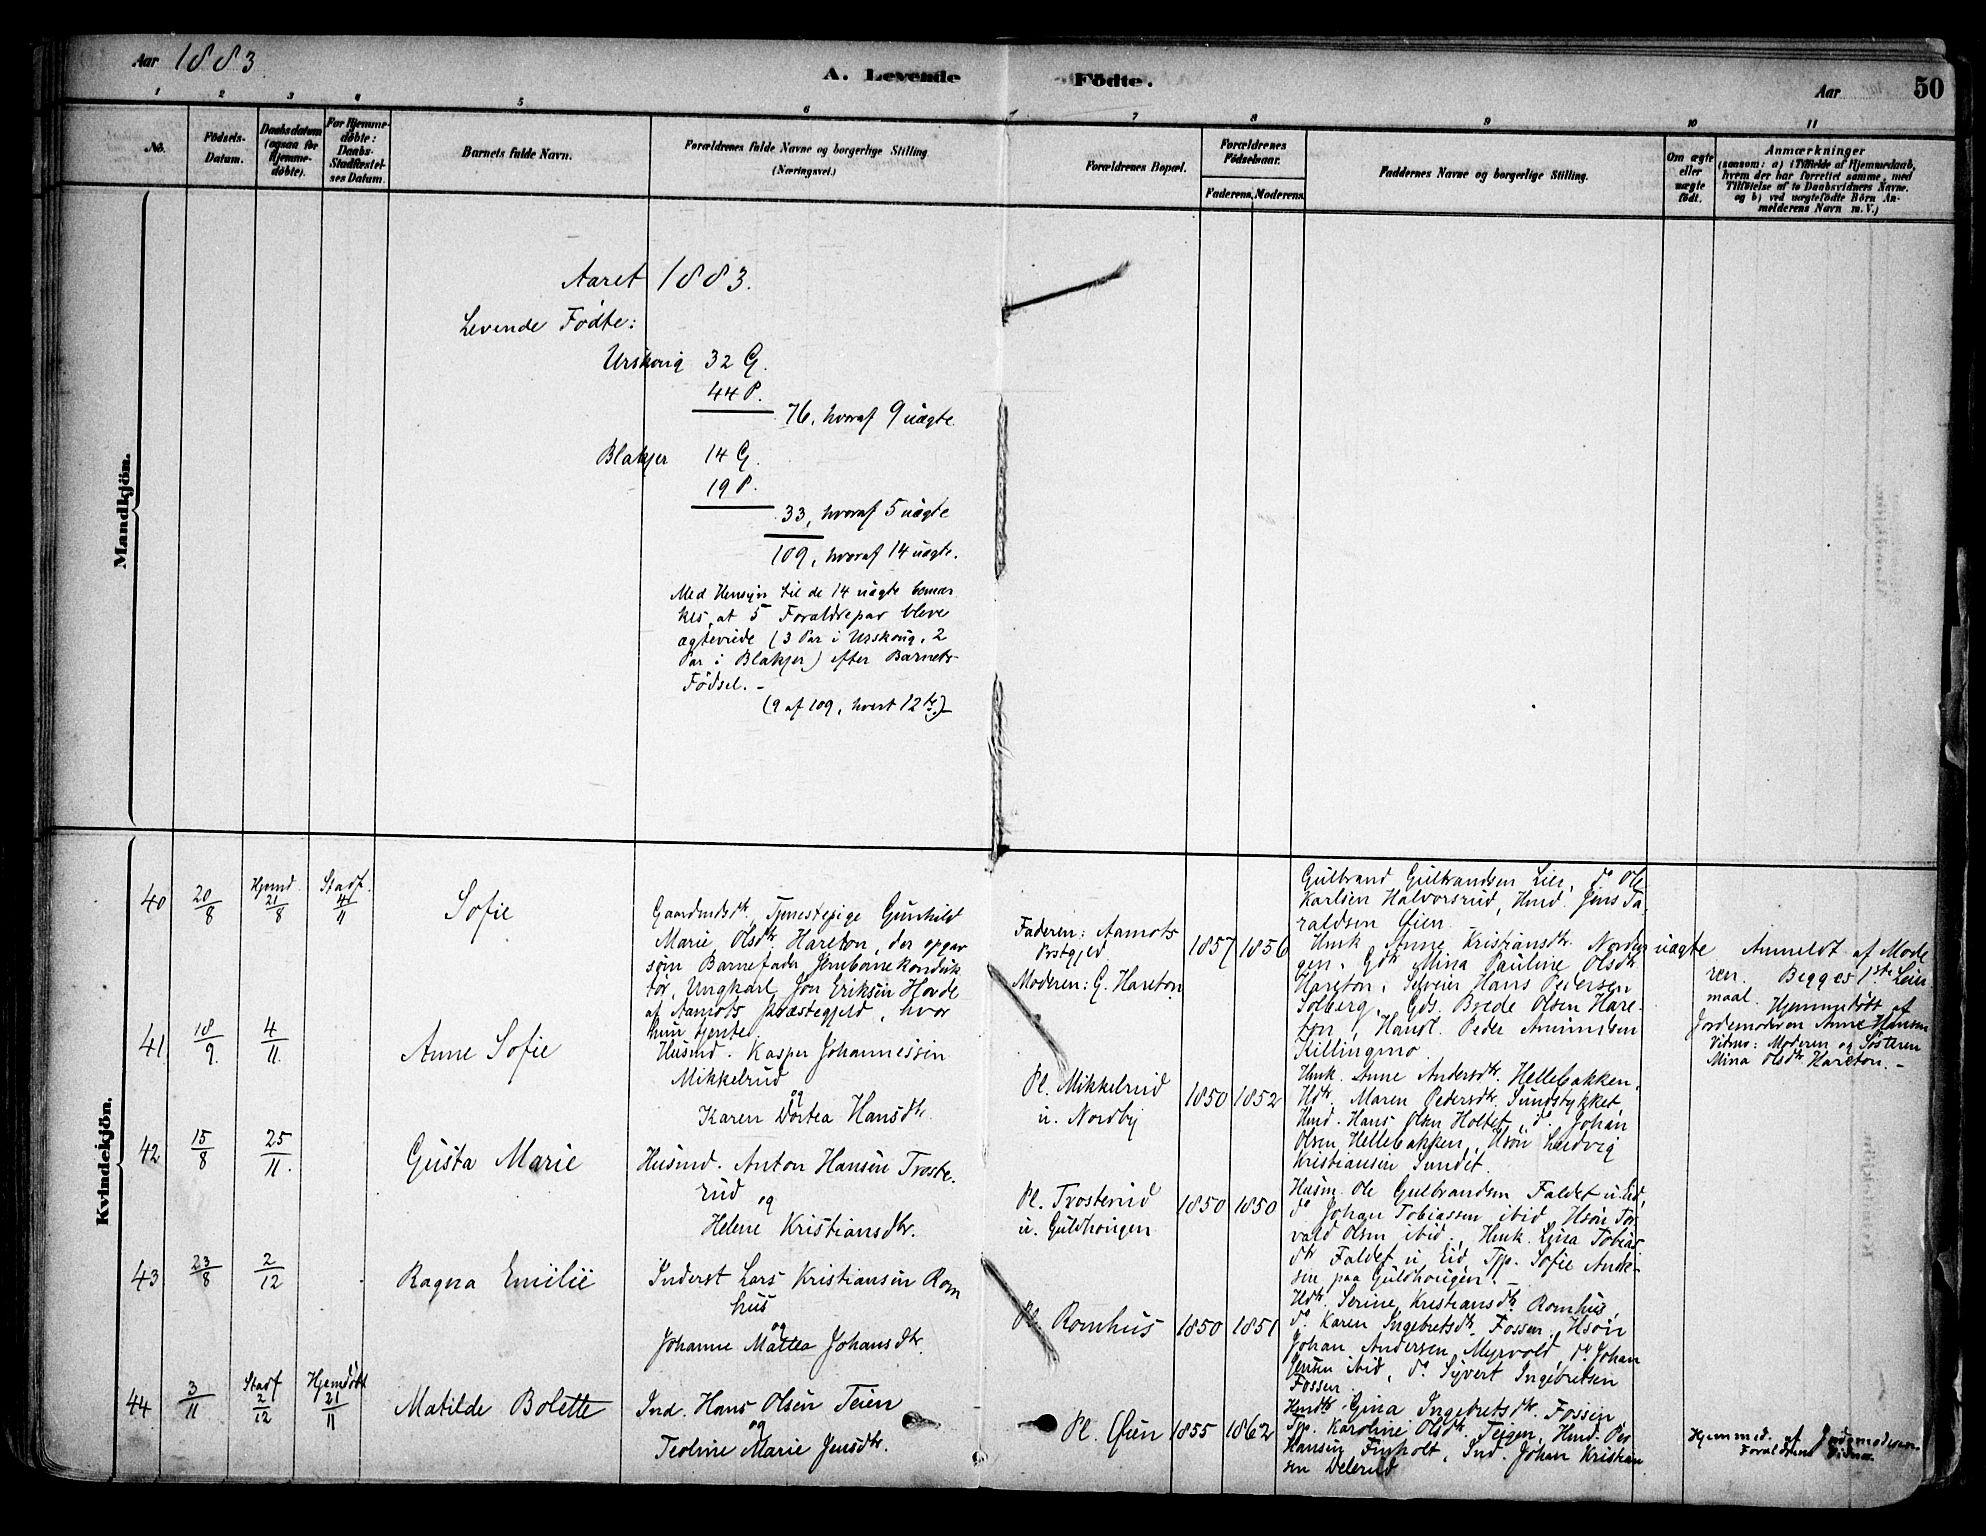 Aar 1883
A. Levende Födte.
Aar
50
1 2 3 4 5 6 7 8 9 10 11
No.
Födsels-
Datum.
Daabsdatum
(ogsaa for
Hjemme-
döbte).
For Hjemme-
döbte:
Daabs-
Stadfæstel-
ses Datum.
Barnets fulde Navn.
Forældrenes fulde Navne og borgerlige Stilling
(Næringsvei.)
Forældrenes Bopæl.
Forældrenes
Födselsaar.
Faderens. Moderens.
Faddernes Navne og borgerlige Stilling.
Om ægte
eller
uægte
födt.
Anmærkninger
(saasom: a) i Tilfælde af Hjemmedaab,
hvem der har forrettet samme, med
Tilföielse af to Daabsvidners Navne.
og b) ved uægtefödte Börn An-
melderens Navn m. V.)
Mandkjön.
Aaret 1883.
Levende Födte:
Urskoug 32 G.
44 P.
76, hvoraf 9 uægte.
Blakjer 14 G.
19 P.
33, hvoraf 5 uægte
109, hvoraf 14 uægte.
Med Hensyn til de 14 uægte bemær
kes, at 5 Forældrepar bleve
ægteviede (3 Par i Urskoug, 2
Par i Blakjer) efter Barnets
Födsel. –
(9 af 109, hvert 12te.) –
Kvindekjön.
40
20/8
Hjemd. 21/8
Stadf. 4/11
Sofie
Gaardmdsdtr, Tjenestepige Gunhild
Marie Olsdtr. Hareton, der opgav
som Barnefader Jernbanekonduk
tør, Ungkarl Jon Eriksen Hovde
af Aamots Præstegjeld, hvor
hun tjente.
Faderen: Aamots
Prstgjeld
Moderen: G. Hareton
1857 1856
Gulbrand Gulbrandsen Lier, do Ole
Karlsen Halvorsrud, Hmd. Jens Ta-
raldsen Øien
Hmk. Anne Kristiansdtr. Norden
gen, Gdtr. Mina Pauline Olsdtr
Hareton, Selveier Hans Pedersen
Solberg, Gds. Brede Olsen Hare-
ton, Handl. Peder Amundsen
Killingmo.
uægte
Anmeldt af Mode
ren. Begges 1ste Leier
maal. Hjemmedöbt af
Jordemoderen Anne Hansen
Vidner: Moderen og Søsteren
Mina Olsdtr Hareton. –
41
18/9.
4/11.
Anne Sofie
Husmd. Kasper Johannessen
Mikkelrud
og
Karen Dortea Hansdtr.
Pl. Mikkelrud
u. Nordby
1850 1852
Hmk. Anne Andersdtr. Hellebakken,
Hdtr. Maren Pedersdtr. Sundstykket
Hmd. Hans Olsen Holtet, do. Johan
Olsen Hellebakken, Hsøn Ludvig
Kristiansen Sundet.
42
15/8
25/11.
Gusta Marie
Husmd. Anton Hansen Troste-
rud
og
Helene Kristiansdtr.
Pl. Trosterud
u. Guldhougen
1850 1850
Husm. Ole Gulbrandsen Faldet u. Eid,
do Johan Tobiassen ibid, Hsøn Tor
vald Olsen ibid, Hmk. Lina Tobias
dtr Faldet u. Eid, Tjp. Sofie Ande-
sen paa Guldhougen. –
43
23/8
2/12
Ragna Emilie
Inderst Lars Kristiansen Rom
hus
og
Johanne Mattea Johansdtr.
Pl. Romhus
1850 1851
Hdtr. Serine Kristiansdtr. Romhus,
do. Karen Ingebretsdtr. Fossen, Hsøn
Johan Andersen Myrvold, do Johan
Jensen ibid, do. Syvert Ingebretsen
Fossen.
44
3/11
Stadf 2/12
Hjemdöbt 21/11
Matilde Bolette
Ind. Hans Olsen Teien
og
Teoline Marie Jensdtr.
Pl. Øien
1855 1862
Hmdtr. Gina Ingebretsdtr. Fossen
Tjp. Karoline Olsdtr. Teigen, Hmd. Per
Hansen Finholt, Ind. Johan Kristian
sen Delerud
Hjemmed. af Jordemoderen
Forældrene Vidner